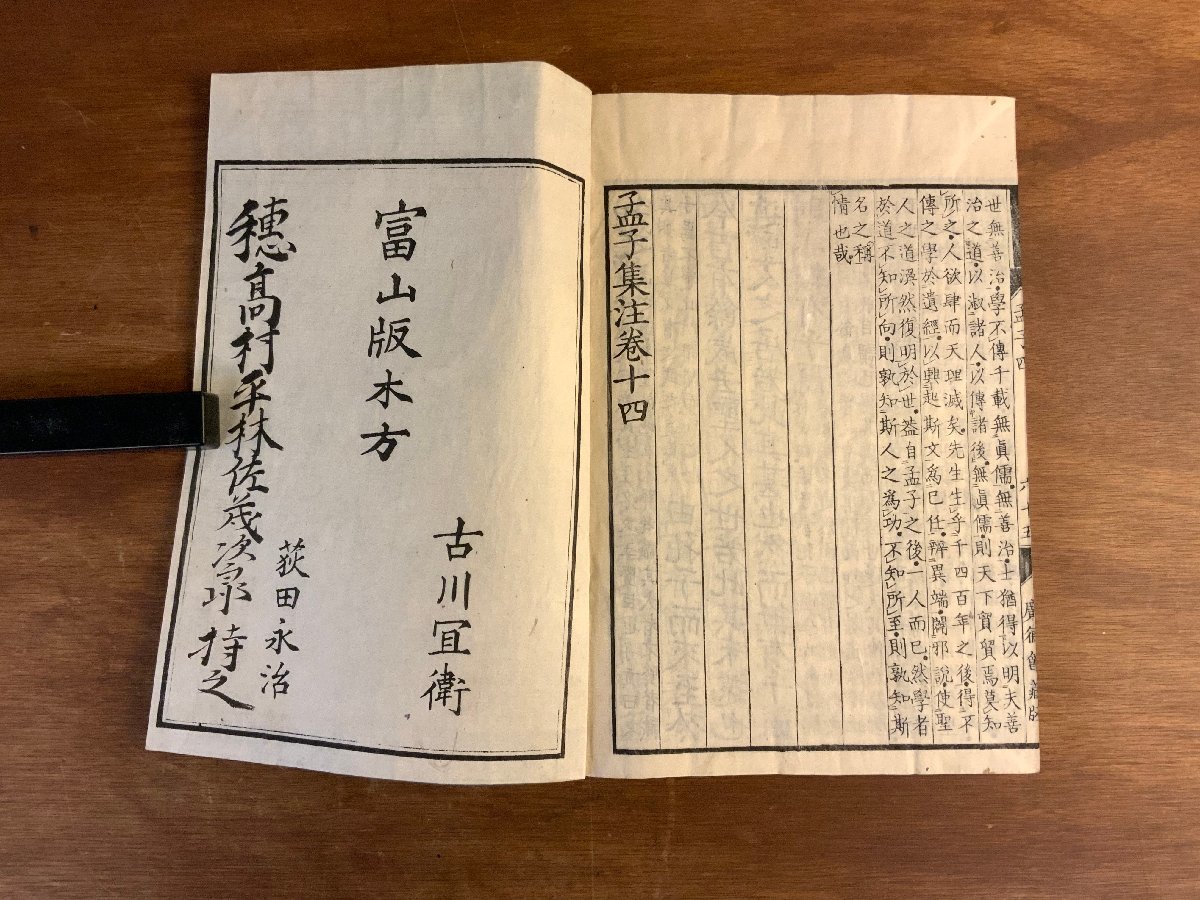 孟子四 六十五 廣徳館藏版
世無善治學不傳千載無眞儒無善治士猶得以明夫善
治之道以淑諸人以傳諸後無眞儒則天下貿貿焉莫知
所之人欲肆而天理滅矣先生生乎千四百年之後得不
傳之學於遺經以興起斯文為已任辨異端闢邪說使聖
人之道渙然復明於世盖自孟子之後一人而已然學者
於道不知所向則孰知斯人之為功不知所至則孰知斯
名之稱
情也哉
孟子集注卷十四
富山版木方
古川冝衛
荻田永治
穗髙村平林佐茂次 持之